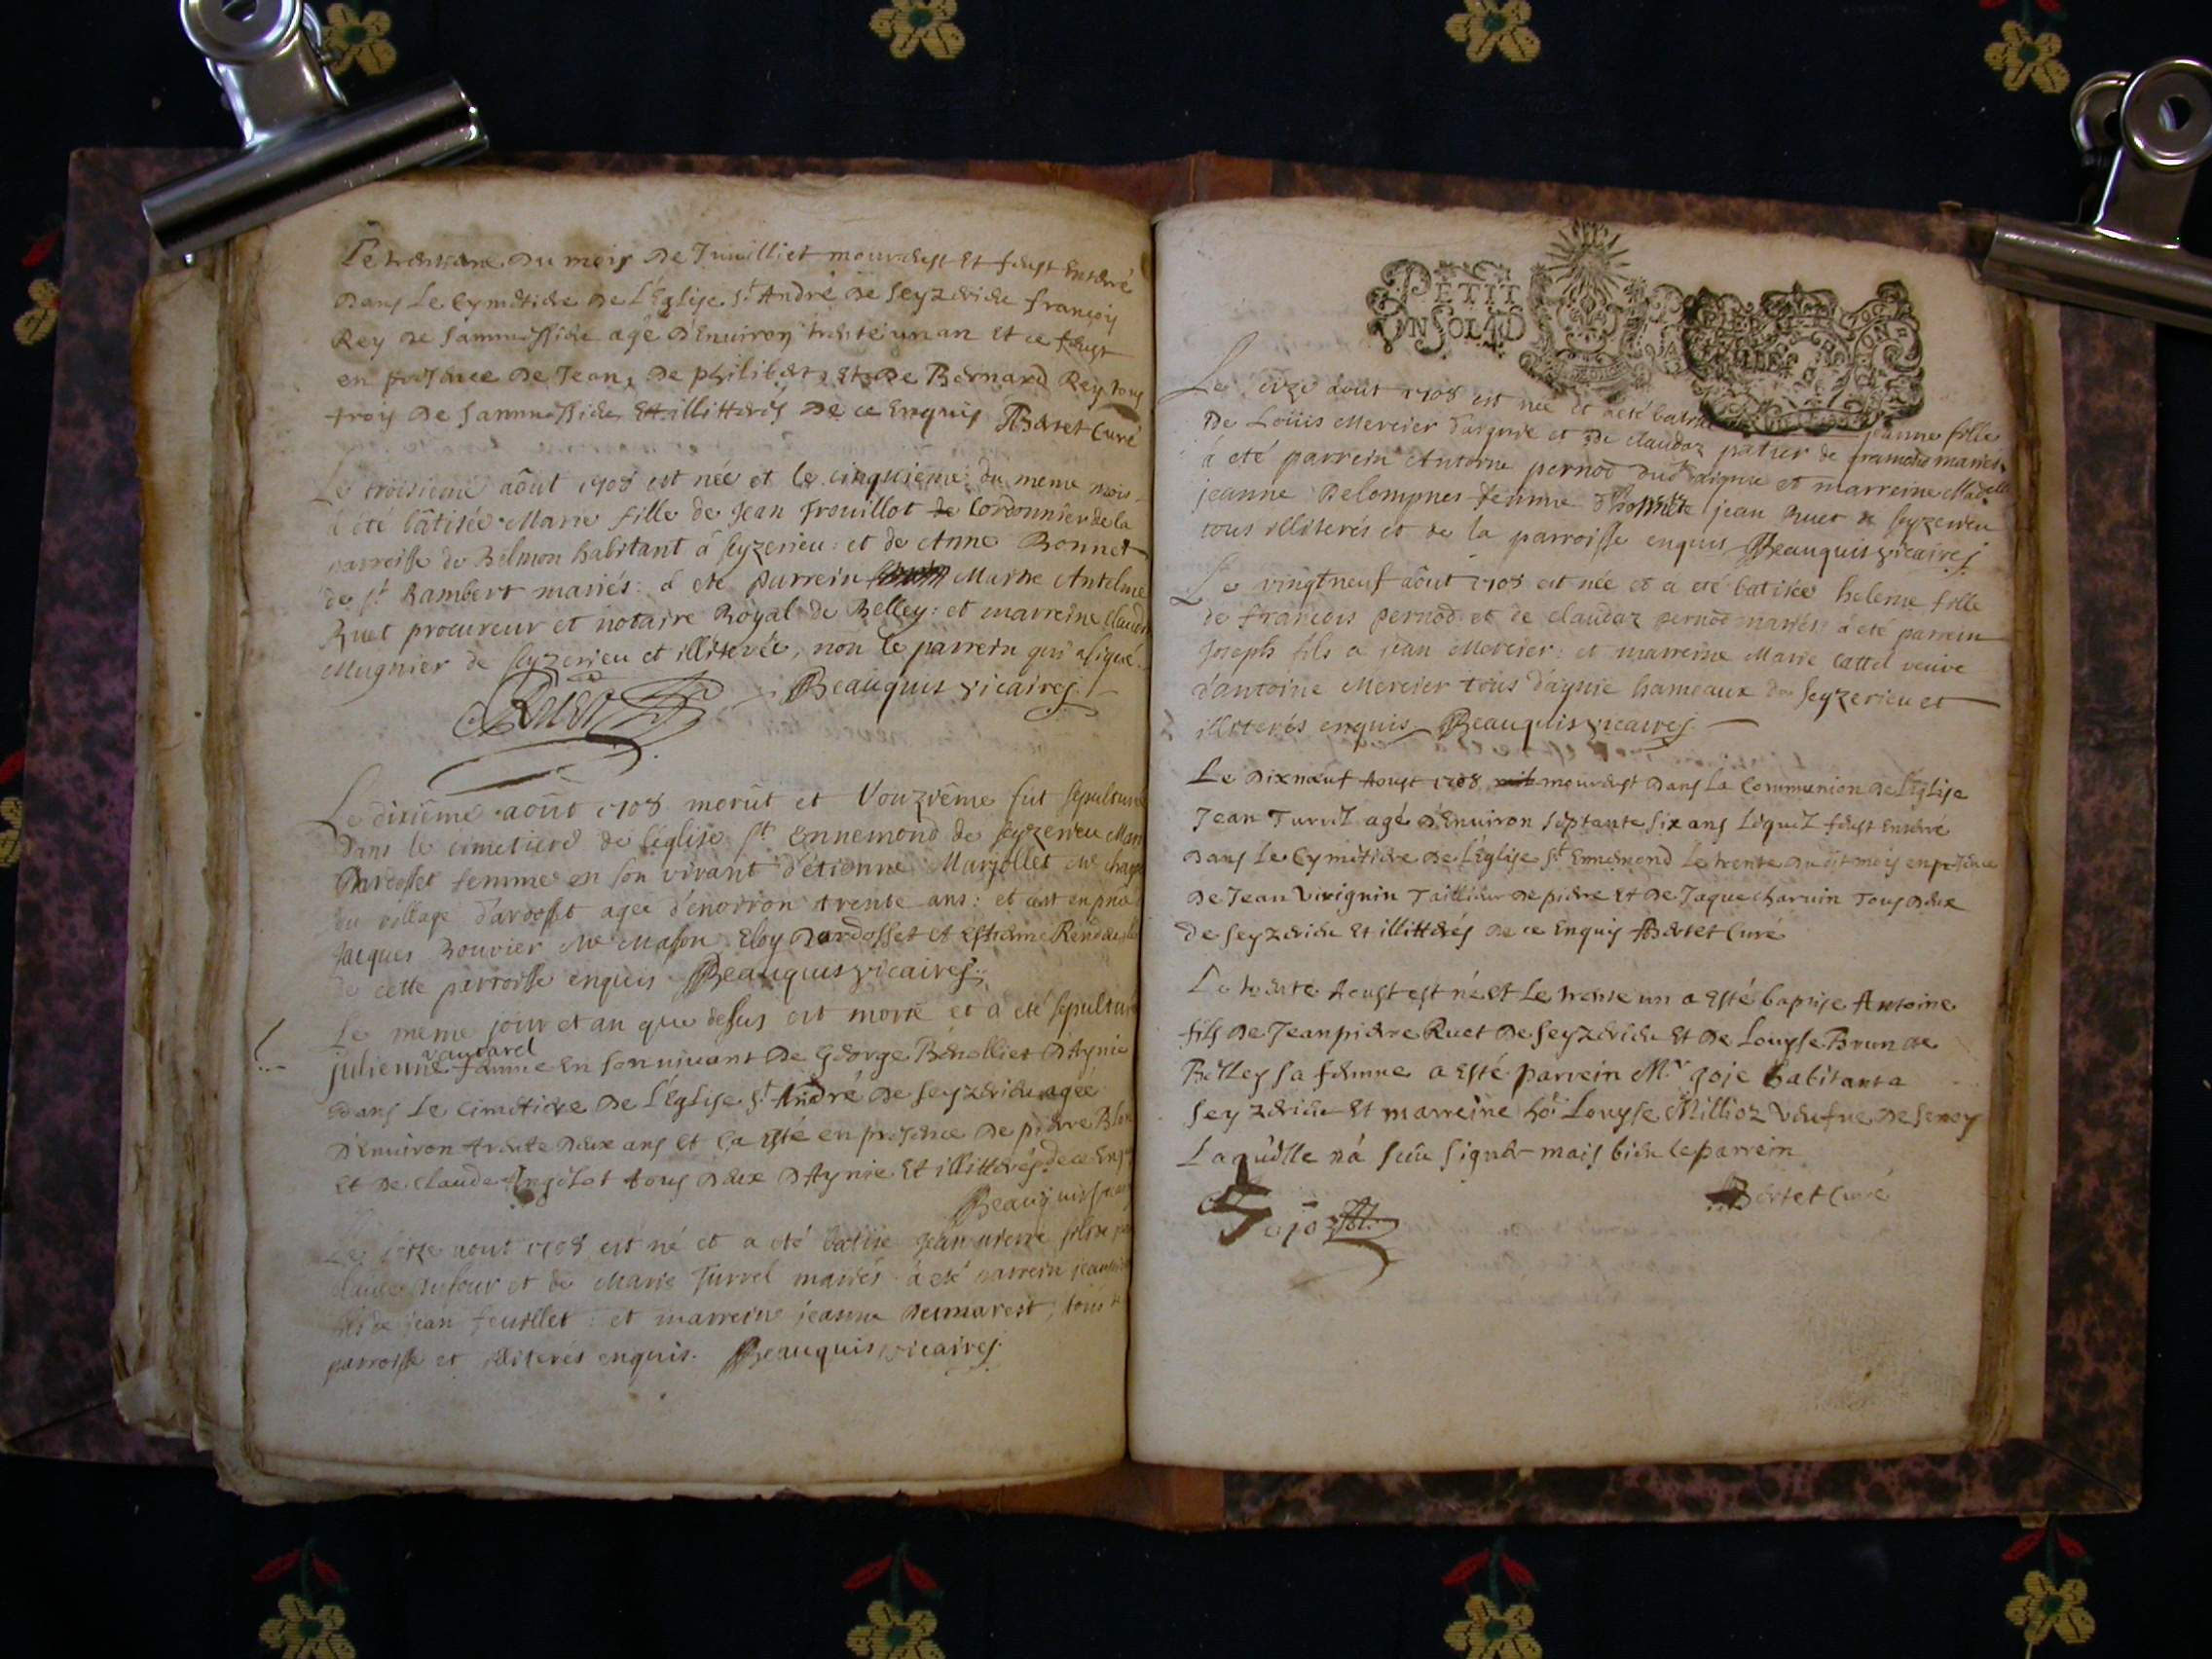 du mois de Juuilliet mourust et fust enterré
dans Le Cymetiere de L'Eglise St André de Seyzerieu françois
Rey de agé d'Enuiron trente un an Et ce fust
en presence de Jean, de philibert, et de Bernard Rey tous
trois de Et illitterés de ce Enquis Bertet Curé
Le troisieme aôut 1708 est née et le cinquieme du meme mois
à été bâtisée Marie fille de Jean Trouillot de Cordonnier de la
parroisse de Belmon habitant à Seyzerieu: et de Anne Bonnet
de St Rambert mariés: à été parrein Maitre Antelme
Ruet procureur et notaire Royal de Belley: et marreine
Mugnier de Seyzerieu et illiterée, non le parrein qui a signé.
Ruet Beauquis vicaires
Le dixieme aoüt 1708 morût et l'onzieme fut sepulturée
Dans le cimetiere de l'église St Ennemond de Seyzerieu
Dardosset femme en son vivant d'étienne Marjollet
du village d'ardosset agée d'environ trente ans: et c'est en
Jacques Bouvier Me Mason, Eloy Dardosset et Estienne
de cette parroisse enquis Beauquis vicaires
Le meme jour et an que desus est morte et à été sepulturée
vaucarel
julienne femme en son uiuant de George D'Aynie
dans Le Cimetiere de L'Eglise St André de Seyzerieu agée
d'Enuiron trente deux ans et ça esté en presence de pierre
Et de Claude tous deux d'Aynie Et illitterés de ce
Beauquis
Le aout 1708 est né et a eté batisé Jean pierre fils de
Claude Dufour et de Marie Turrel mariés à eté parrein
fils de jean feuillet: et marreine jeanne Demarest, tous
parroisse et illiterés enquis. Beauquis vicaires
PETIT
UN SOL 4 D
Le onze aout 1708 est née et à eté jeanne fille
De Loüis Mercier d'aignie et de claudaz patier de mariés
à eté parrein Antoine pernod dud. aignie et marreine
jeanne Delompnes femme d'honnete jean Ruet de Seyzerieu
tous illiterés et de la parroisse enquis Beauquis vicaires
Le vingt neuf aôut 1708 est née et a eté batisée helene fille
de francois pernod et de claudaz pernod mariés: à eté parrein
Joseph fils a jean Mercier: et marreine Marie Cattel veuve
d'antoine Mercier tous d'aynie hameaux de Seyzerieu et
illiterés enquis Beauquis vicaires
Le Dixneuf Aoust 1708 mourust dans La Communion de L'Eglise
Jean Turril agé d'Enuiron septante six ans Lequel fust enterré
dans Le Cymetiere de L'Eglise St Ennemond Le trente du dit mois en presence
de Jean Virignin Taillieur de pierre Et de Jaque Charuin Tous deux
de Seyzerieu Et illitterés de ce Enquis Bertet Curé
Le trente Aoust est né et Le trente un a Esté baptisé Antoine
fils de Jeanpierre Ruet de Seyzerieu Et de Louyse Brun de
Belley sa femme a Esté parrein Mr goje habitant a
Seyzerieu Et marreine ho: Louyse Millioz Veufue de
Laquelle n'á sceu signer mais bien le parrein
Bertet Curé